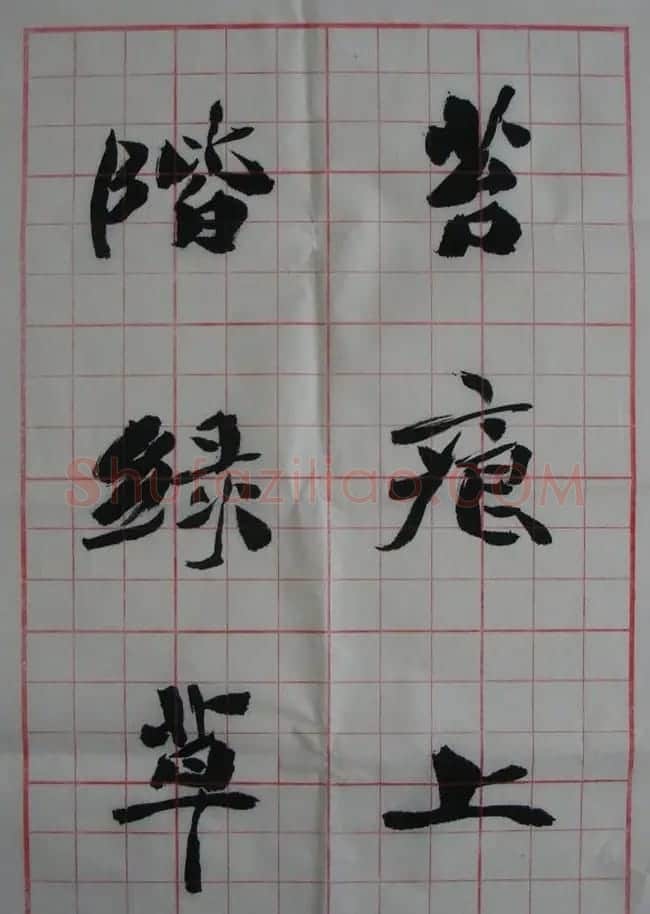 苔痕上
階緑草
Shufaziliao.COM